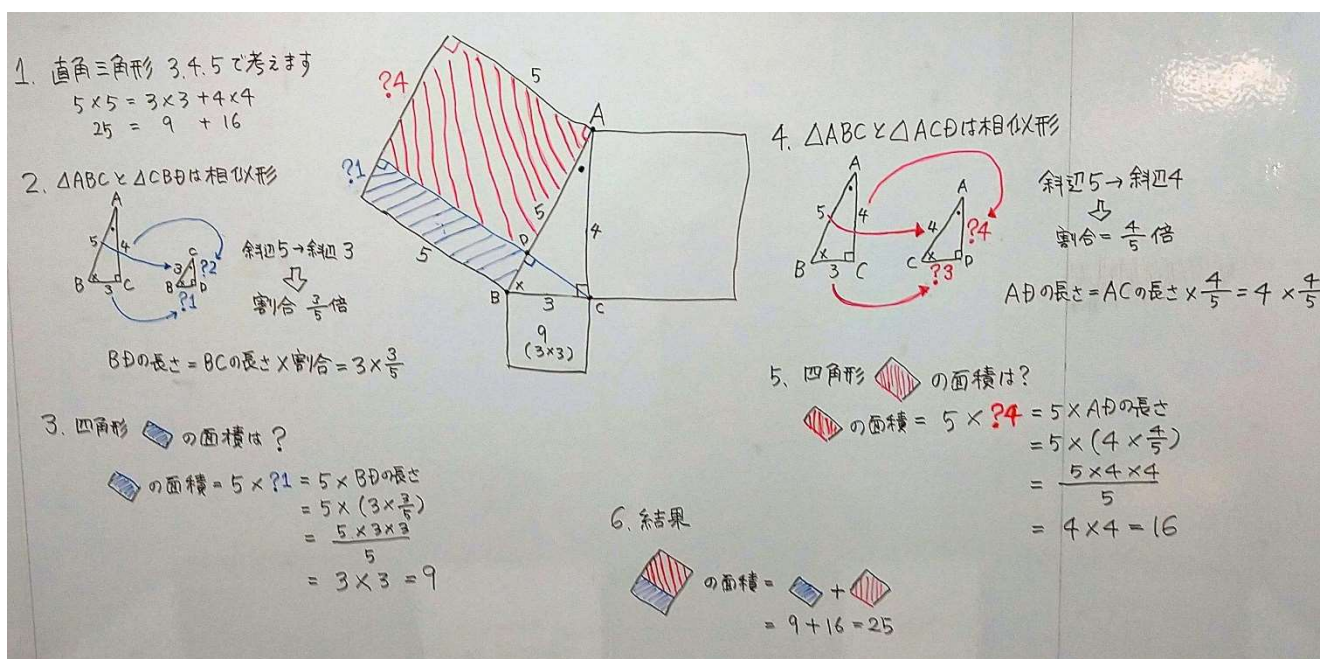 1. 直角三角形 3.4.5で考えます
5×5=3×3+4×4
25 = 9 +16
2. △ABCと△CBDは相似形
A
5
4
B
×
3
C
C
3
?2
B
×
D
?1
斜辺5→斜辺3
⇩
割合 3/5倍
BDの長さ=BCの長さ×割合=3×3/5
3. 四角形 の面積は?
の面積=5×?1=5×BDの長さ
=5×(3×3/5)
= 5×3×3/5
= 3×3=9
?4
5
A
?1
5
4
5
D
B
×
3
C
9
(3×3)
4. △ABCと△ACDは相似形
A
5
4
B
×
3
C
A
4
?4
C
×
D
?3
斜辺5→斜辺4
⇩
割合=4/5倍
ADの長さ=ACの長さ×4/5=4×4/5
5、四角形 の面積は?
の面積= 5×?4=5×ADの長さ
=5×(4×4/5)
= 5×4×4/5
= 4×4=16
6、結果
の面積= +
= 9+16=25